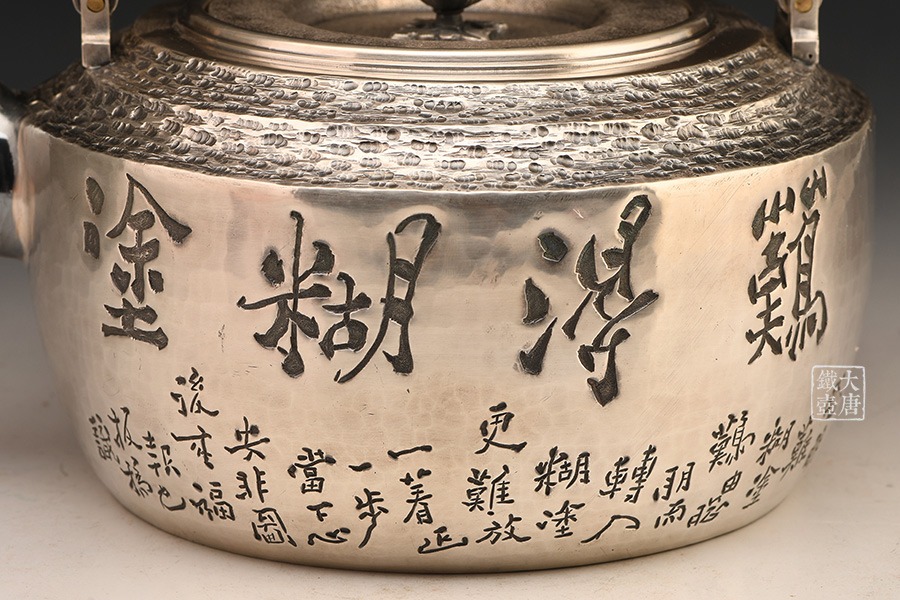 難得糊塗
難
糊塗
難由聰
明而
轉入
糊塗
更難放
一著退
一步
當下心
安非圖
後來福
報也
板橋
識
大唐
鐵壺